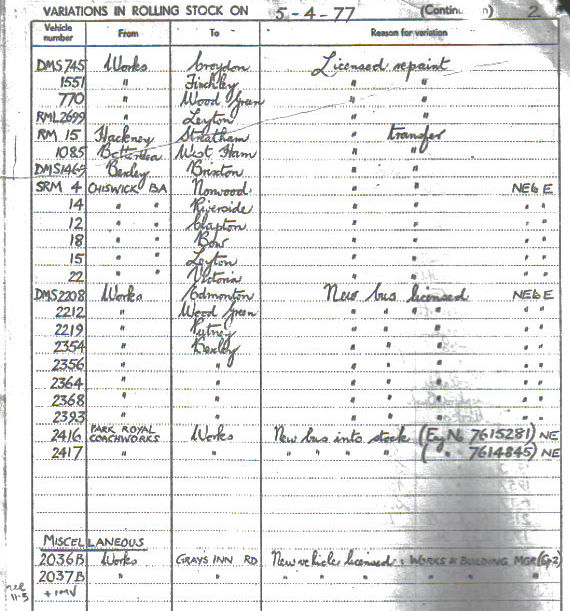 VARIATIONS IN ROLLING STOCK ON 5-4-77 (Continu n) 2
Vehicle number From To Reason for variation
DMS745 Works Croydon Licensed repaint
1551 " Finchley " "
770 " Wood Green " "
RML2699 " Leyton " "
RM 15 Hackney Streatham " transfer
1085 Battersea West Ham " "
DMS1465 Bexley Brixton " "
SRM 4 CHISWICK BA Norwood " " NE6E
14 " " Riverside " " " "
12 " " Clapton " " " "
18 " " Bow " " " "
15 " " Leyton " " " "
22 " " Victoria " " " "
DMS2208 Works Edmonton New bus licensed NE6E
2212 " Wood Green " " " " "
2219 " Putney " " " " "
2354 " Bexley " " " " "
2356 " " " " " " "
2364 " " " " " " "
2368 " " " " " " "
2393 " " " " " " "
2416 PARK ROYAL COACHWORKS Works New bus into stock (Eng No 7615281) NE
2417 " " " " " " ( " 7614845) NE
MISCELLANEOUS
2036B Works GRAYS INN RD New vehicles licensed : WORKS & BUILDING MGR (Gp2)
2037B " " " " " " " " "
11·5